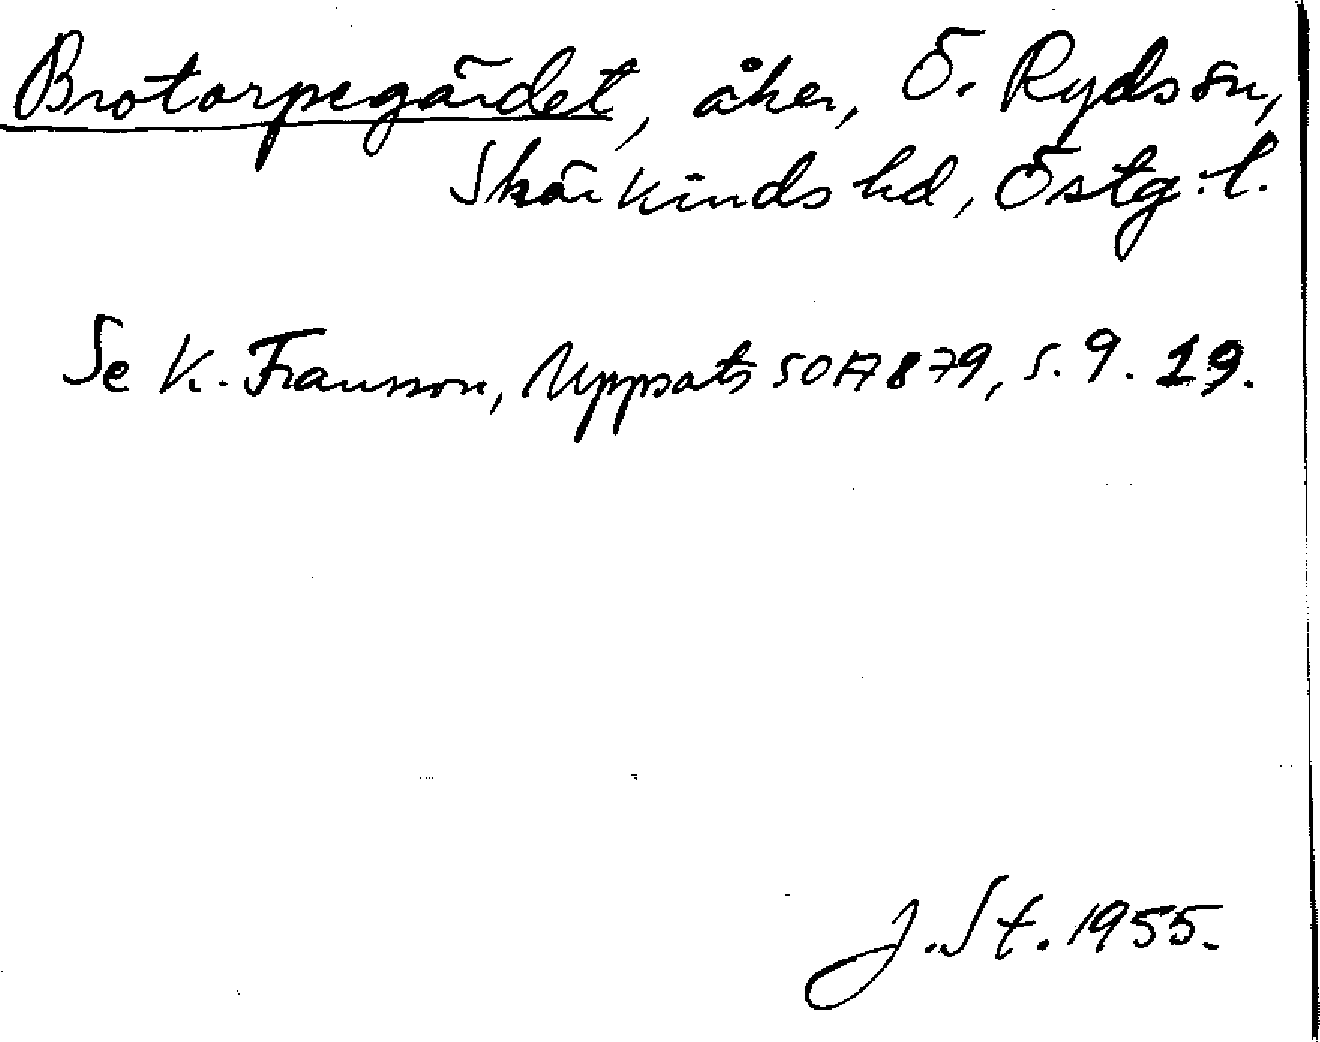 Brotorpegärdet, åker, Ö. Ryds sn,
Skärkinds hd, Östg:l.
Se K. Fransson, Uppsats SOA 879, s. 9. 19.
J. St. 1955.